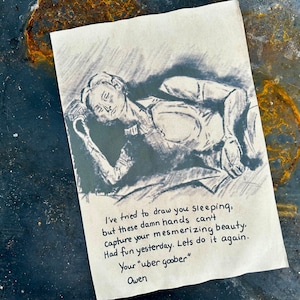 I've tried to draw you sleeping,
but these damn hands can't
capture your mesmerizing beauty.
Had fun yesterday. Lets do it again.
Your "uber goober"
Owen